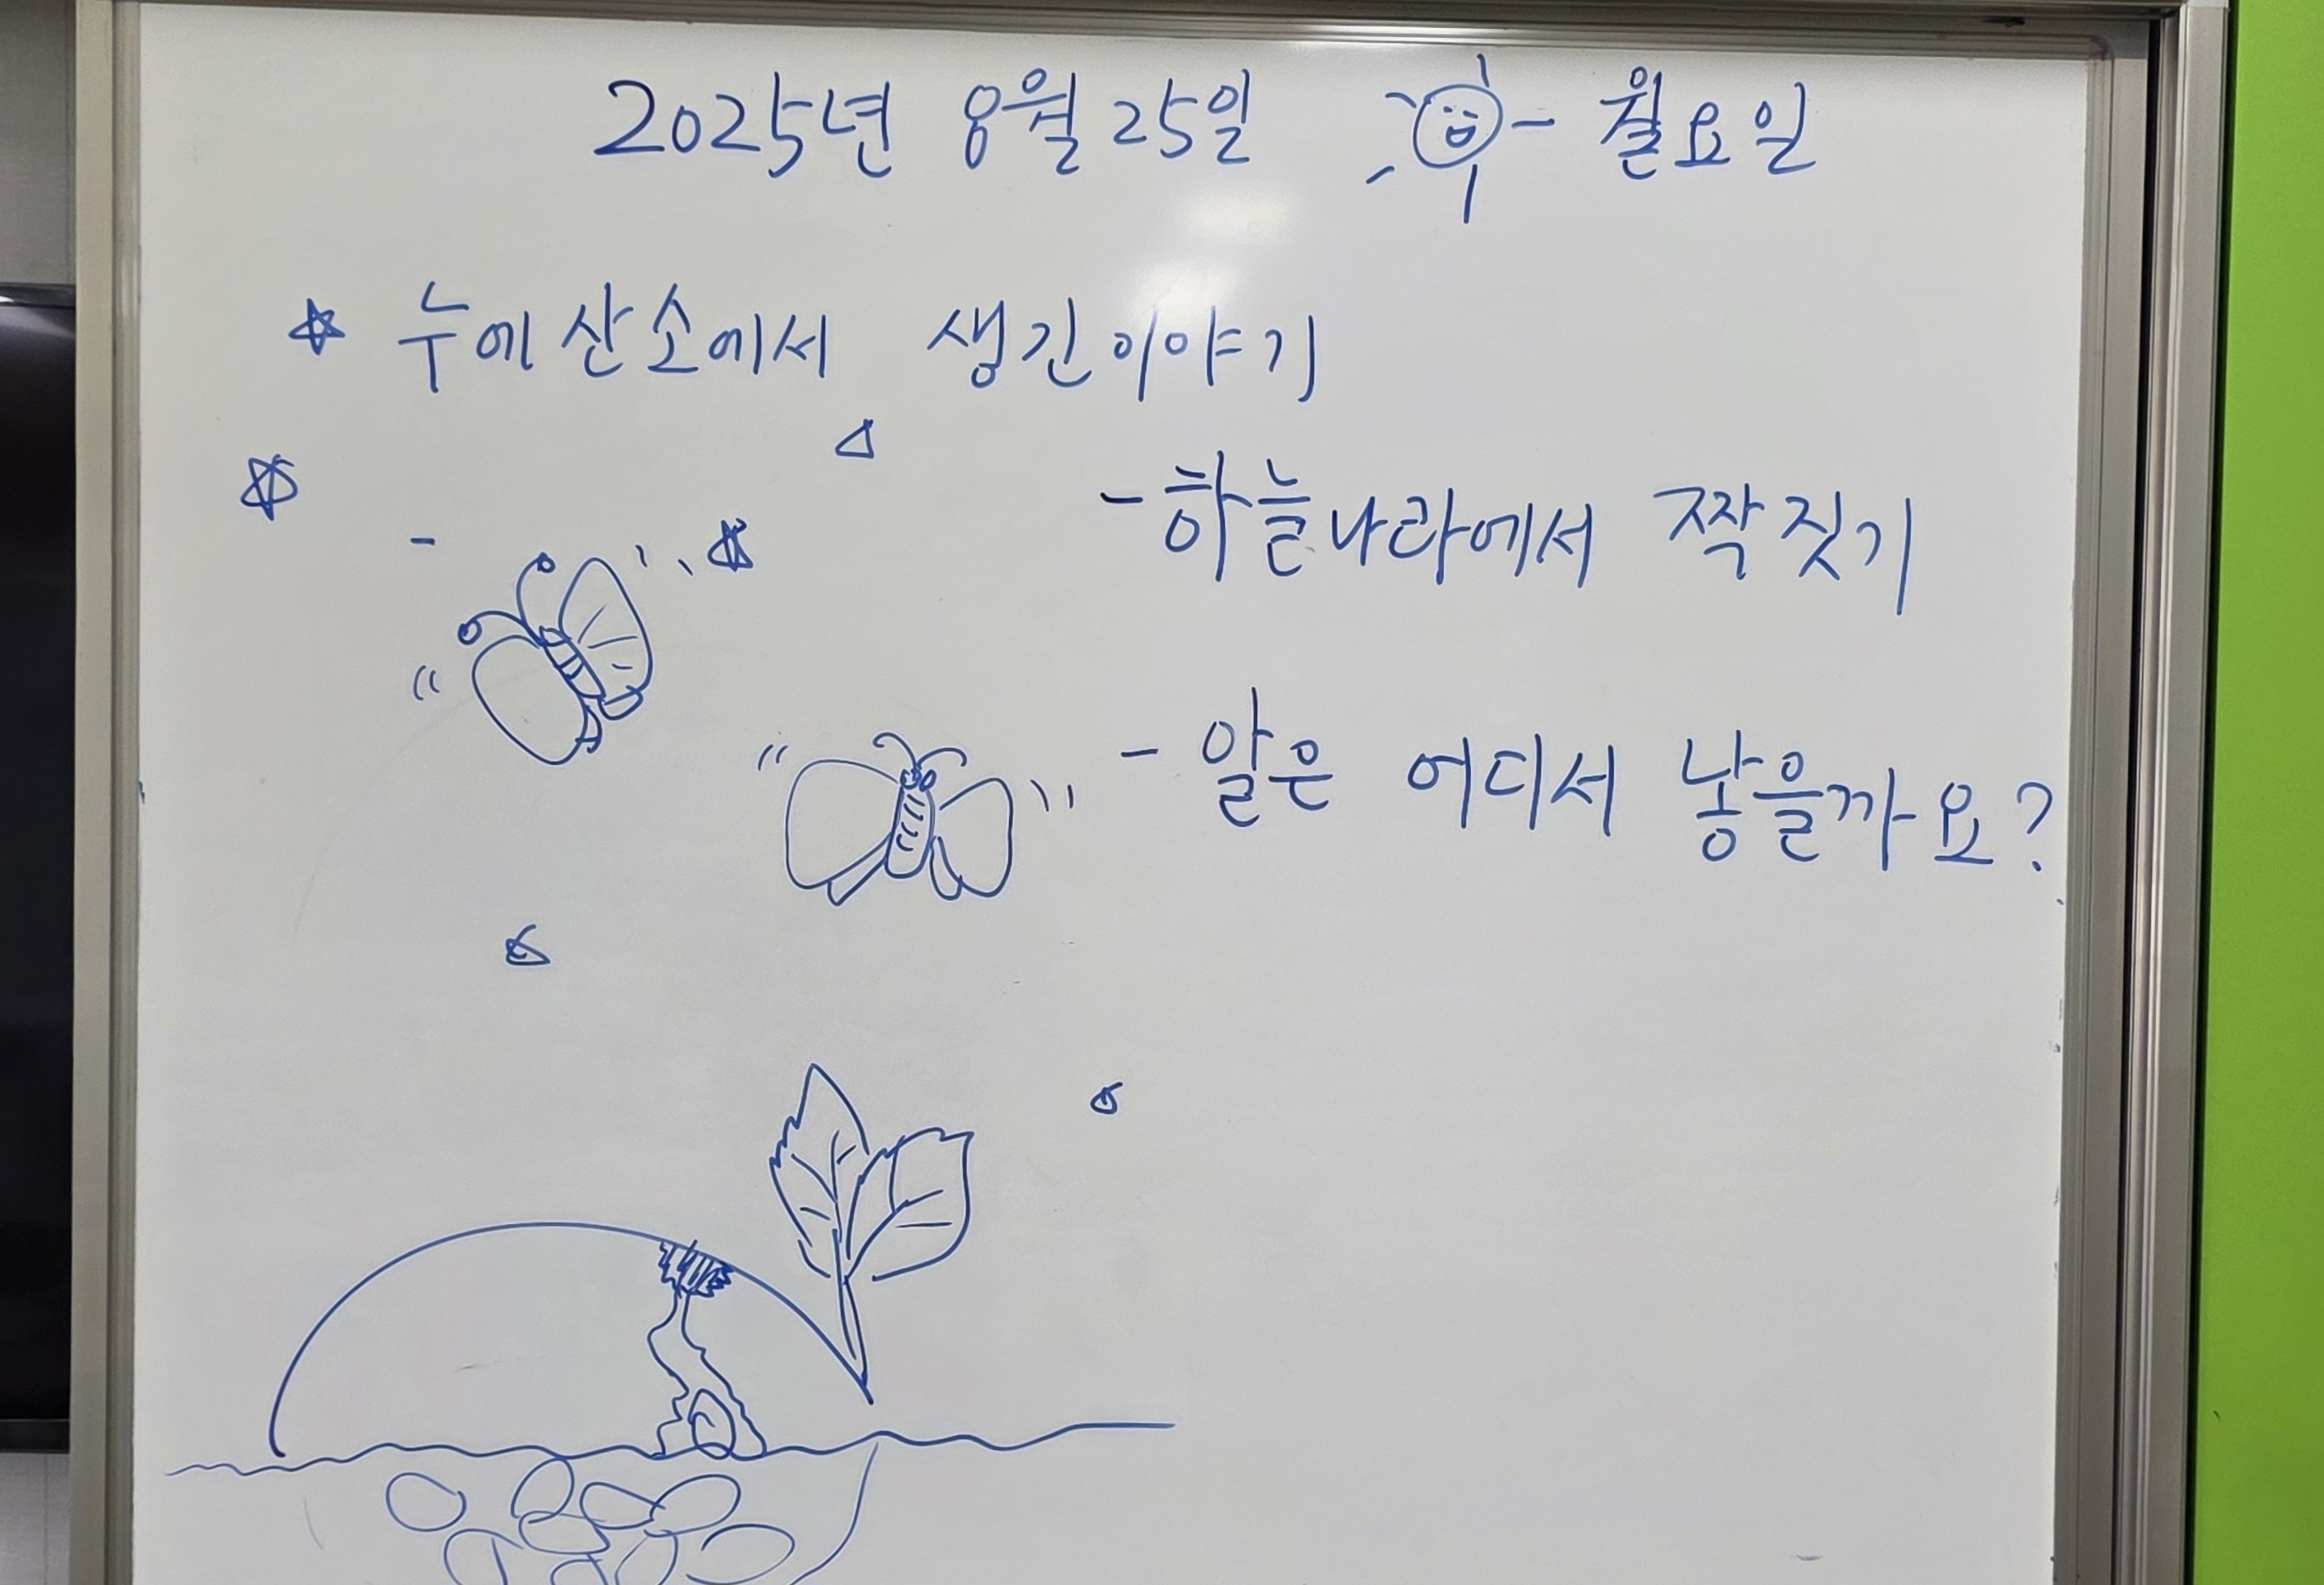 2025년 8월 25일 월요일
누에 산소에서 생긴 이야기
- 하늘나라에서 짝짓기
- 알은 어디서 낳을까요?